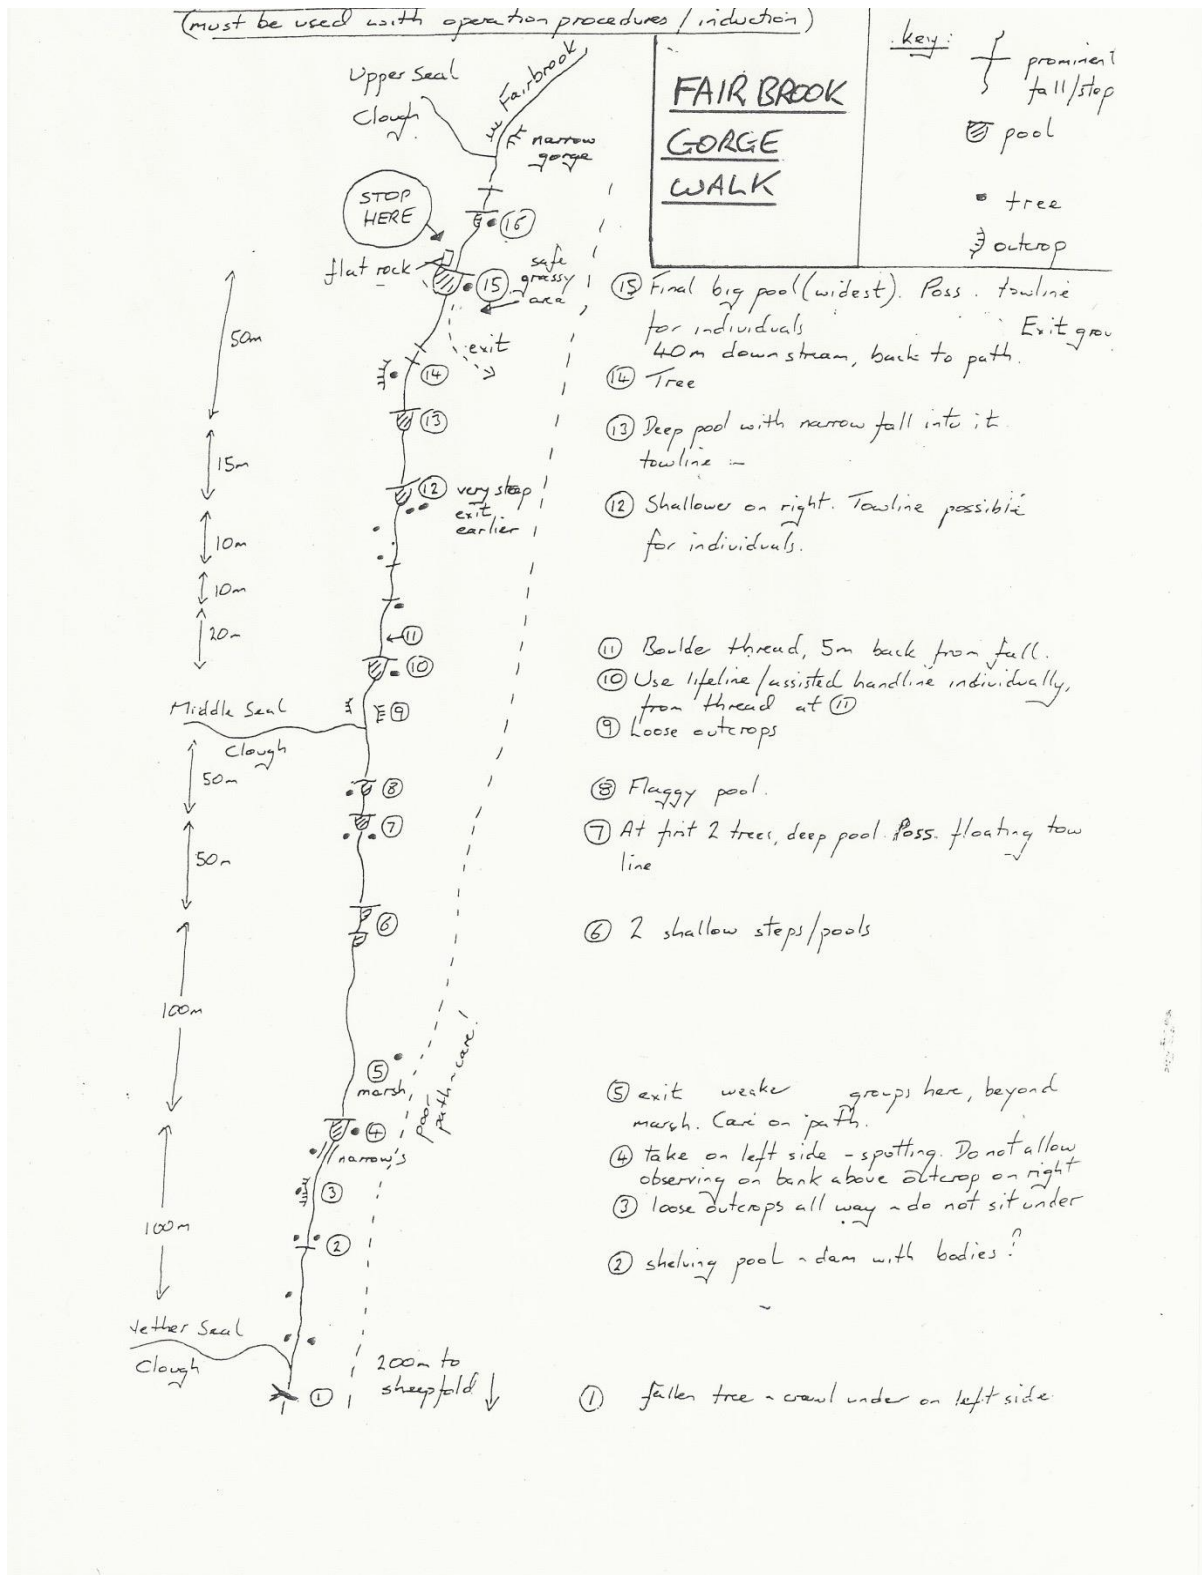 (must be used with operation procedures/induction)
FAIRBROOK
GORGE
WALK
key:
prominent
fall/step
pool
tree
outcrop
Upper Seal
Clough
Fairbrook
narrow
gorge
STOP
HERE
16
flat rock
15
safe
grassy
area
exit
50m
14
13
15m
12 very steep
exit
earlier
10m
10m
20m
11
10
Middle Seal
Clough
9
50m
8
7
50m
6
100m
5
marsh
poor
path - care!
4
narrow's
3
100m
2
Nether Seal
Clough
200m to
sheepfold
1
15 Final big pool (widest). Poss. towline
for individuals Exit grou
40m downstream, back to path.
14 Tree
13 Deep pool with narrow fall into it
towline -
12 Shallower on right. Towline possible
for individuals.
11 Boulder thread, 5m back from fall.
10 Use lifeline/assisted handline individually,
from thread at 11
9 Loose outcrops
8 Flaggy pool.
7 At first 2 trees, deep pool. Poss. floating tow
line
6 2 shallow steps/pools
5 exit weaker groups here, beyond
marsh. Care on path.
4 take on left side - spotting. Do not allow
observing on bank above outcrop on right
3 loose outcrops all way - do not sit under
2 shelving pool - dam with bodies?
1 fallen tree - crawl under on left side